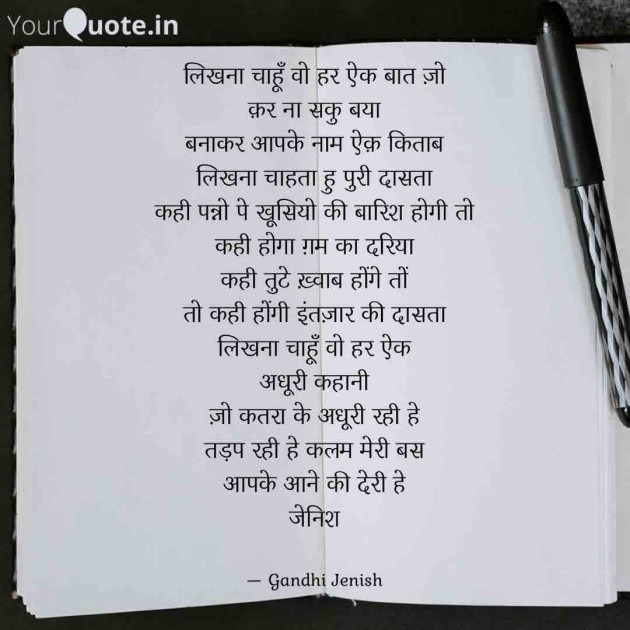 YourQuote.in
लिखना चाहूँ वो हर ऐक बात ज़ो
क़र ना सकु बया
बनाकर आपके नाम ऐक़ किताब
लिखना चाहता हु पुरी दासता
कही पन्नो पे खूसियो की बारिश होगी तो
कही होगा ग़म का दरिया
कही तुटे ख़्वाब होंगे तों
तो कही होंगी इंतज़ार की दासता
लिखना चाहूँ वो हर ऐक
अधूरी कहानी
ज़ो कतरा के अधूरी रही हे
तड़प रही हे कलम मेरी बस
आपके आने की देरी हे
जेनिश
— Gandhi Jenish